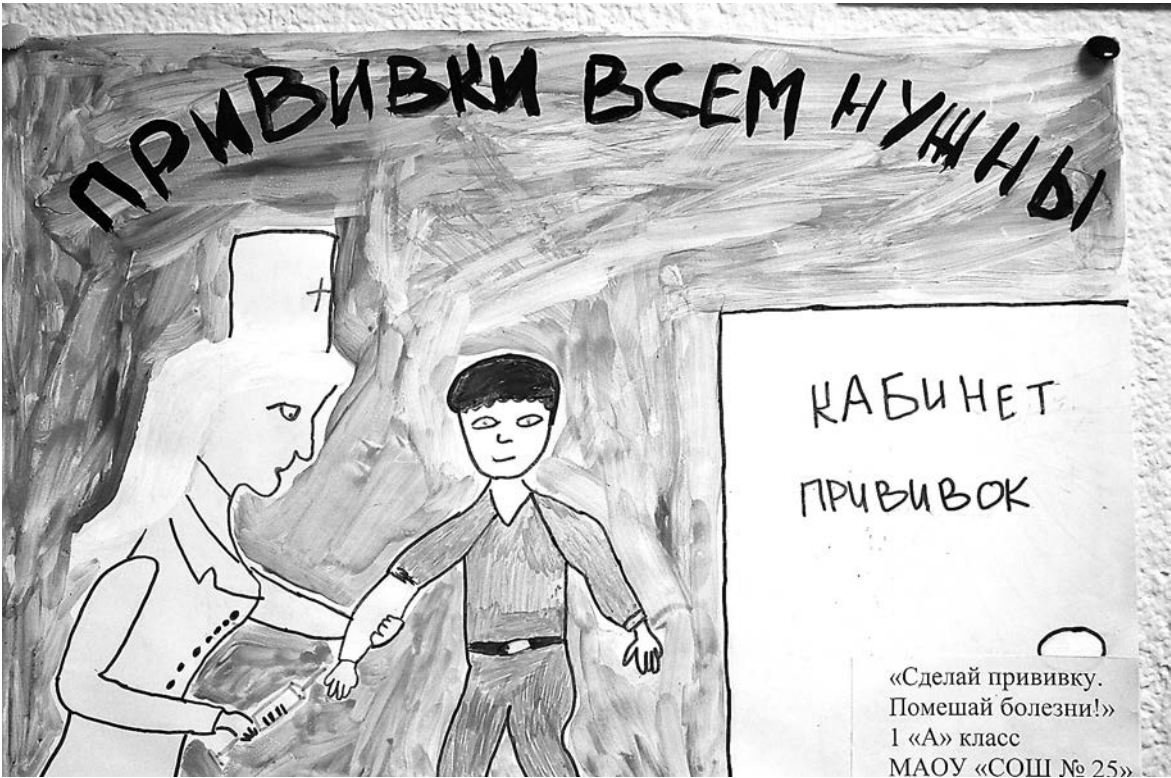 ПРИВИВКИ ВСЕМ НУЖНЫ
КАБИНЕТ
ПРИВИВОК
«Сделай прививку.
Помешай болезни!»
1 «А» класс
МАОУ «СОШ № 25»